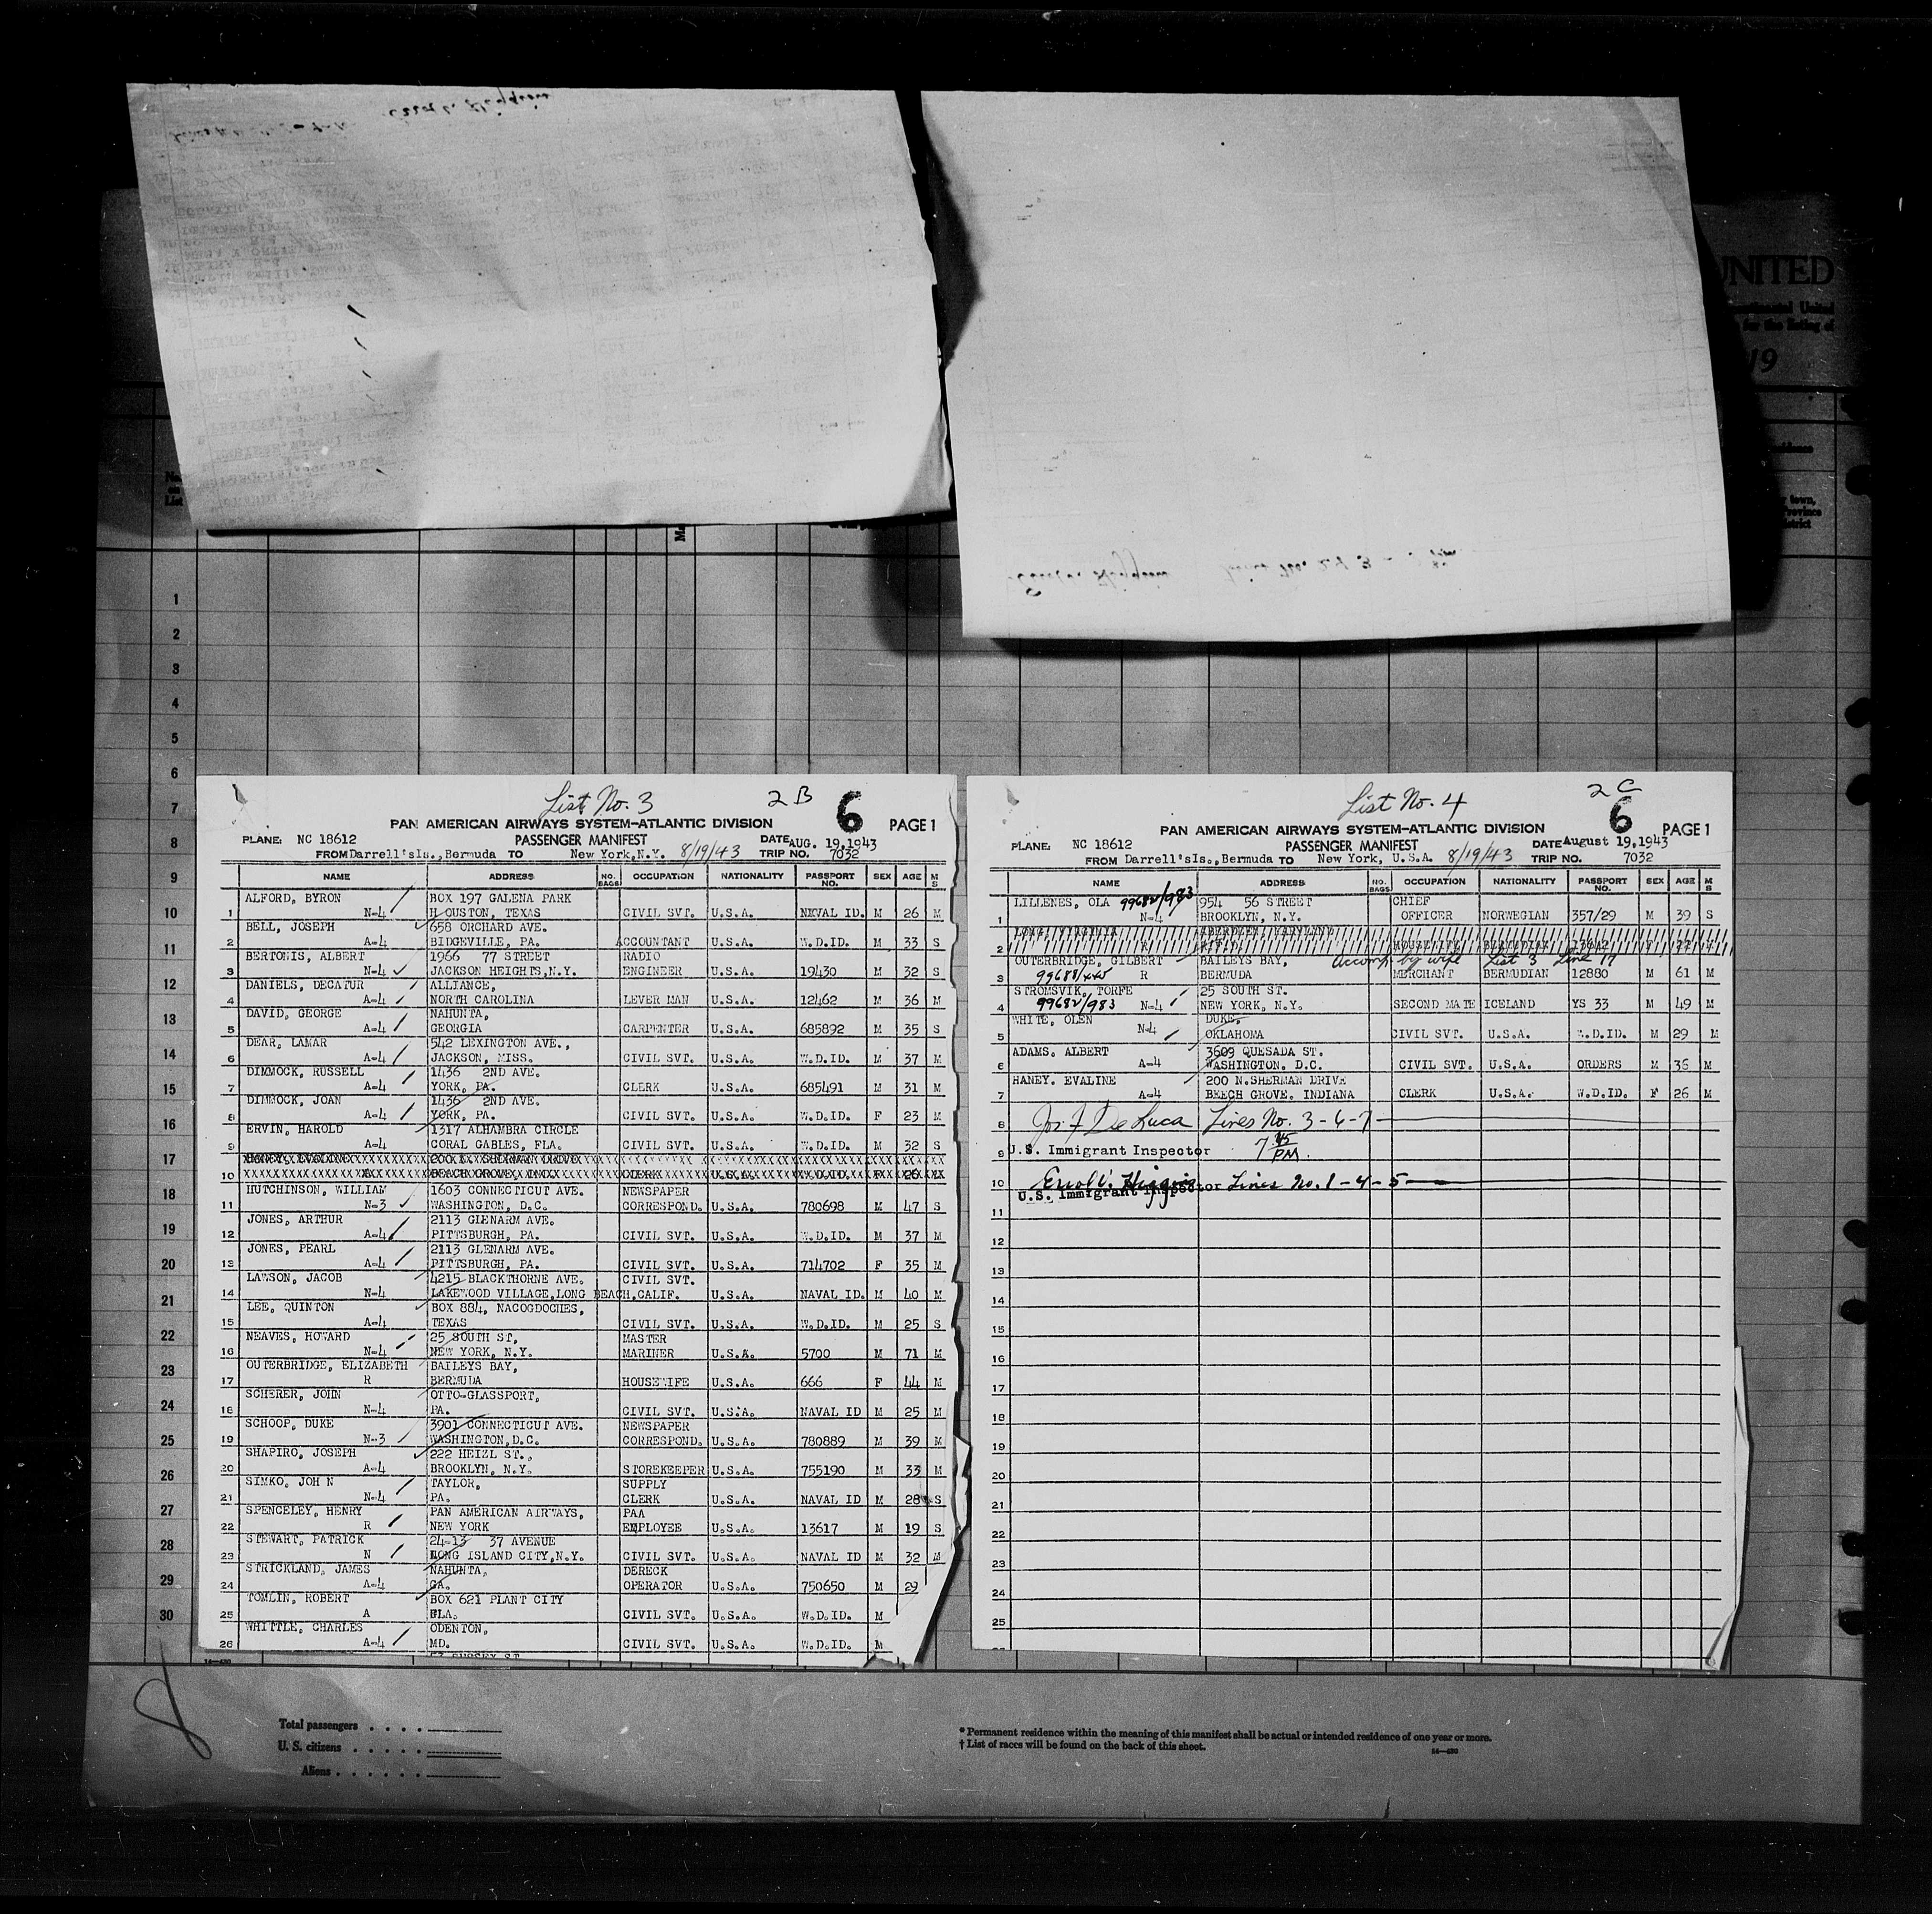 UNITED
19
1
2
3
4
5
6
7
8
9
10
11
12
13
14
15
16
17
18
19
20
21
22
23
24
25
26
27
28
29
30
List No. 3 2 B 6
PAN AMERICAN AIRWAYS SYSTEM-ATLANTIC DIVISION PAGE 1
PLANE: NC 18612 PASSENGER MANIFEST DATE AUG. 19,1943
FROM Darrell'sIs., Bermuda TO New York,N.Y. 8/19/43 TRIP NO. 7032
NAME ADDRESS NO. BAGS OCCUPATION NATIONALITY PASSPORT NO. SEX AGE M S
ALFORD, BYRON BOX 197 GALENA PARK
1 N-4 H OUSTON, TEXAS CIVIL SVT. U.S.A. NAVAL ID. M 26 M
BELL, JOSEPH 658 ORCHARD AVE.
2 A-4 BIDGEVILLE, PA. ACCOUNTANT U.S.A. W.D.ID. M 33 S
BERTONIS, ALBERT 1966 77 STREET RADIO
3 N-4 JACKSON HEIGHTS,N.Y. ENGINEER U.S.A. 19430 M 32 S
DANIELS, DECATUR ALLIANCE,
4 A-4 NORTH CAROLINA LEVER MAN U.S.A. 12462 M 36 M
DAVID, GEORGE NAHUNTA,
5 A-4 GEORGIA CARPENTER U.S.A. 685892 M 35 S
DEAR, LAMAR 542 LEXINGTON AVE.,
6 A-4 JACKSON, MISS. CIVIL SVT. U.S.A. W.D.ID. M 37 M
DIMMOCK, RUSSELL 1436 2ND AVE.
7 A-4 YORK, PA. CLERK U.S.A. 685491 M 31 M
DIMMOCK, JOAN 1436 2ND AVE.
8 A-4 YORK, PA. CIVIL SVT. U.S.A. W.D.ID. F 23 M
ERVIN, HAROLD 1317 ALHAMBRA CIRCLE
9 A-4 CORAL GABLES, FLA. CIVIL SVT. U.S.A. W.D.ID. M 32 S
HANEY, EVALINE 200 N. SHERMAN DRIVE
10 A BEACH GROVE, IND. CLERK U.S.A. W.D.ID. F 26
HUTCHINSON, WILLIAM 1603 CONNECTICUT AVE. NEWSPAPER
11 N-3 WASHINGTON, D.C. CORRESPOND. U.S.A. 780698 M 47 S
JONES, ARTHUR 2113 GLENARM AVE.
12 A-4 PITTSBURGH, PA. CIVIL SVT. U.S.A. W.D.ID. M 37 M
JONES, PEARL 2113 GLENARM AVE.
13 A-4 PITTSBURGH, PA. CIVIL SVT. U.S.A. 714702 F 35 M
LAWSON, JACOB 4215 BLACKTHORNE AVE. CIVIL SVT.
14 N-4 LAKEWOOD VILLAGE,LONG BEACH,CALIF. U.S.A. NAVAL ID. M 40 M
LEE, QUINTON BOX 884, NACOGDOCHES,
15 A-4 TEXAS CIVIL SVT. U.S.A. W.D.ID. M 25 S
NEAVES, HOWARD 25 SOUTH ST, MASTER
16 N-4 NEW YORK, N.Y. MARINER U.S.A. 5700 M 71 M
OUTERBRIDGE, ELIZABETH BAILEYS BAY,
17 R BERMUDA HOUSEWIFE U.S.A. 666 F 44 M
SCHERER, JOHN OTTO-GLASSPORT,
18 N-4 PA. CIVIL SVT. U.S.A. NAVAL ID M 25 M
SCHOOP, DUKE 3901 CONNECTICUT AVE. NEWSPAPER
19 N-3 WASHINGTON,D.C. CORRESPOND. U.S.A. 780889 M 39 M
SHAPIRO, JOSEPH 222 HEIZL ST.,
20 A-4 BROOKLYN, N.Y. STOREKEEPER U.S.A. 755190 M 33 M
SIMKO, JOH N TAYLOR, SUPPLY
21 N-4 PA. CLERK U.S.A. NAVAL ID M 28 S
SPENCELEY, HENRY PAN AMERICAN AIRWAYS, PAA
22 R NEW YORK EMPLOYEE U.S.A. 13617 M 19 S
STEWART, PATRICK 24-13 37 AVENUE
23 N LONG ISLAND CITY,N.Y. CIVIL SVT. U.S.A. NAVAL ID M 32 M
STRICKLAND, JAMES NAHUNTA, DERECK
24 A-4 GA. OPERATOR U.S.A. 750650 M 29
TOMLIN, ROBERT BOX 621 PLANT CITY
25 A FLA. CIVIL SVT. U.S.A. W.D.ID. M
WHITTLE, CHARLES ODENTON,
26 A-4 MD. CIVIL SVT. U.S.A. W.D.ID. M
List No. 4 2 C 6
PAN AMERICAN AIRWAYS SYSTEM-ATLANTIC DIVISION PAGE 1
PLANE: NC 18612 PASSENGER MANIFEST DATE August 19,1943
FROM Darrell'sIs.,Bermuda TO New York, U.S.A. 8/19/43 TRIP NO. 7032
NAME ADDRESS NO. BAGS OCCUPATION NATIONALITY PASSPORT NO. SEX AGE M S
LILLENES, OLA 99682/983 954 56 STREET CHIEF
1 N-4 BROOKLYN, N.Y. OFFICER NORWEGIAN 357/29 M 39 S
LONG, VIRGINIA ABERDEEN, MARYLAND
2 R HOUSEWIFE BERMUDIAN F 22
OUTERBRIDGE, GILBERT BAILEYS BAY, Accomp. by wife List 3 Line 17
3 99688/xxx R BERMUDA MERCHANT BERMUDIAN 12880 M 61 M
STROMSVIK, TORFE 25 SOUTH ST.
4 99682/983 N-4 NEW YORK, N.Y. SECOND MATE ICELAND YS 33 M 49 M
WHITE, OLEN DUKE,
5 N-4 OKLAHOMA CIVIL SVT. U.S.A. W.D.ID. M 29 M
ADAMS, ALBERT 3609 QUESADA ST.
6 A-4 WASHINGTON, D.C. CIVIL SVT. U.S.A. ORDERS M 36 M
HANEY, EVALINE 200 N.SHERMAN DRIVE
7 A-4 BEECH GROVE, INDIANA CLERK U.S.A. W.D.ID. F 26 M
8 Jos. F. De Luca Lines No. 3-6-7
9 U.S. Immigrant Inspector 7 45 PM.
10 Errol C. Higgins Lines No. 1-4-5
U.S. Immigrant Inspector
11
12
13
14
15
16
17
18
19
20
21
22
23
24
25
Total passengers . . . .
U. S. citizens . . . . .
Aliens . . . . . .
* Permanent residence within the meaning of this manifest shall be actual or intended residence of one year or more.
† List of races will be found on the back of this sheet.
14—430